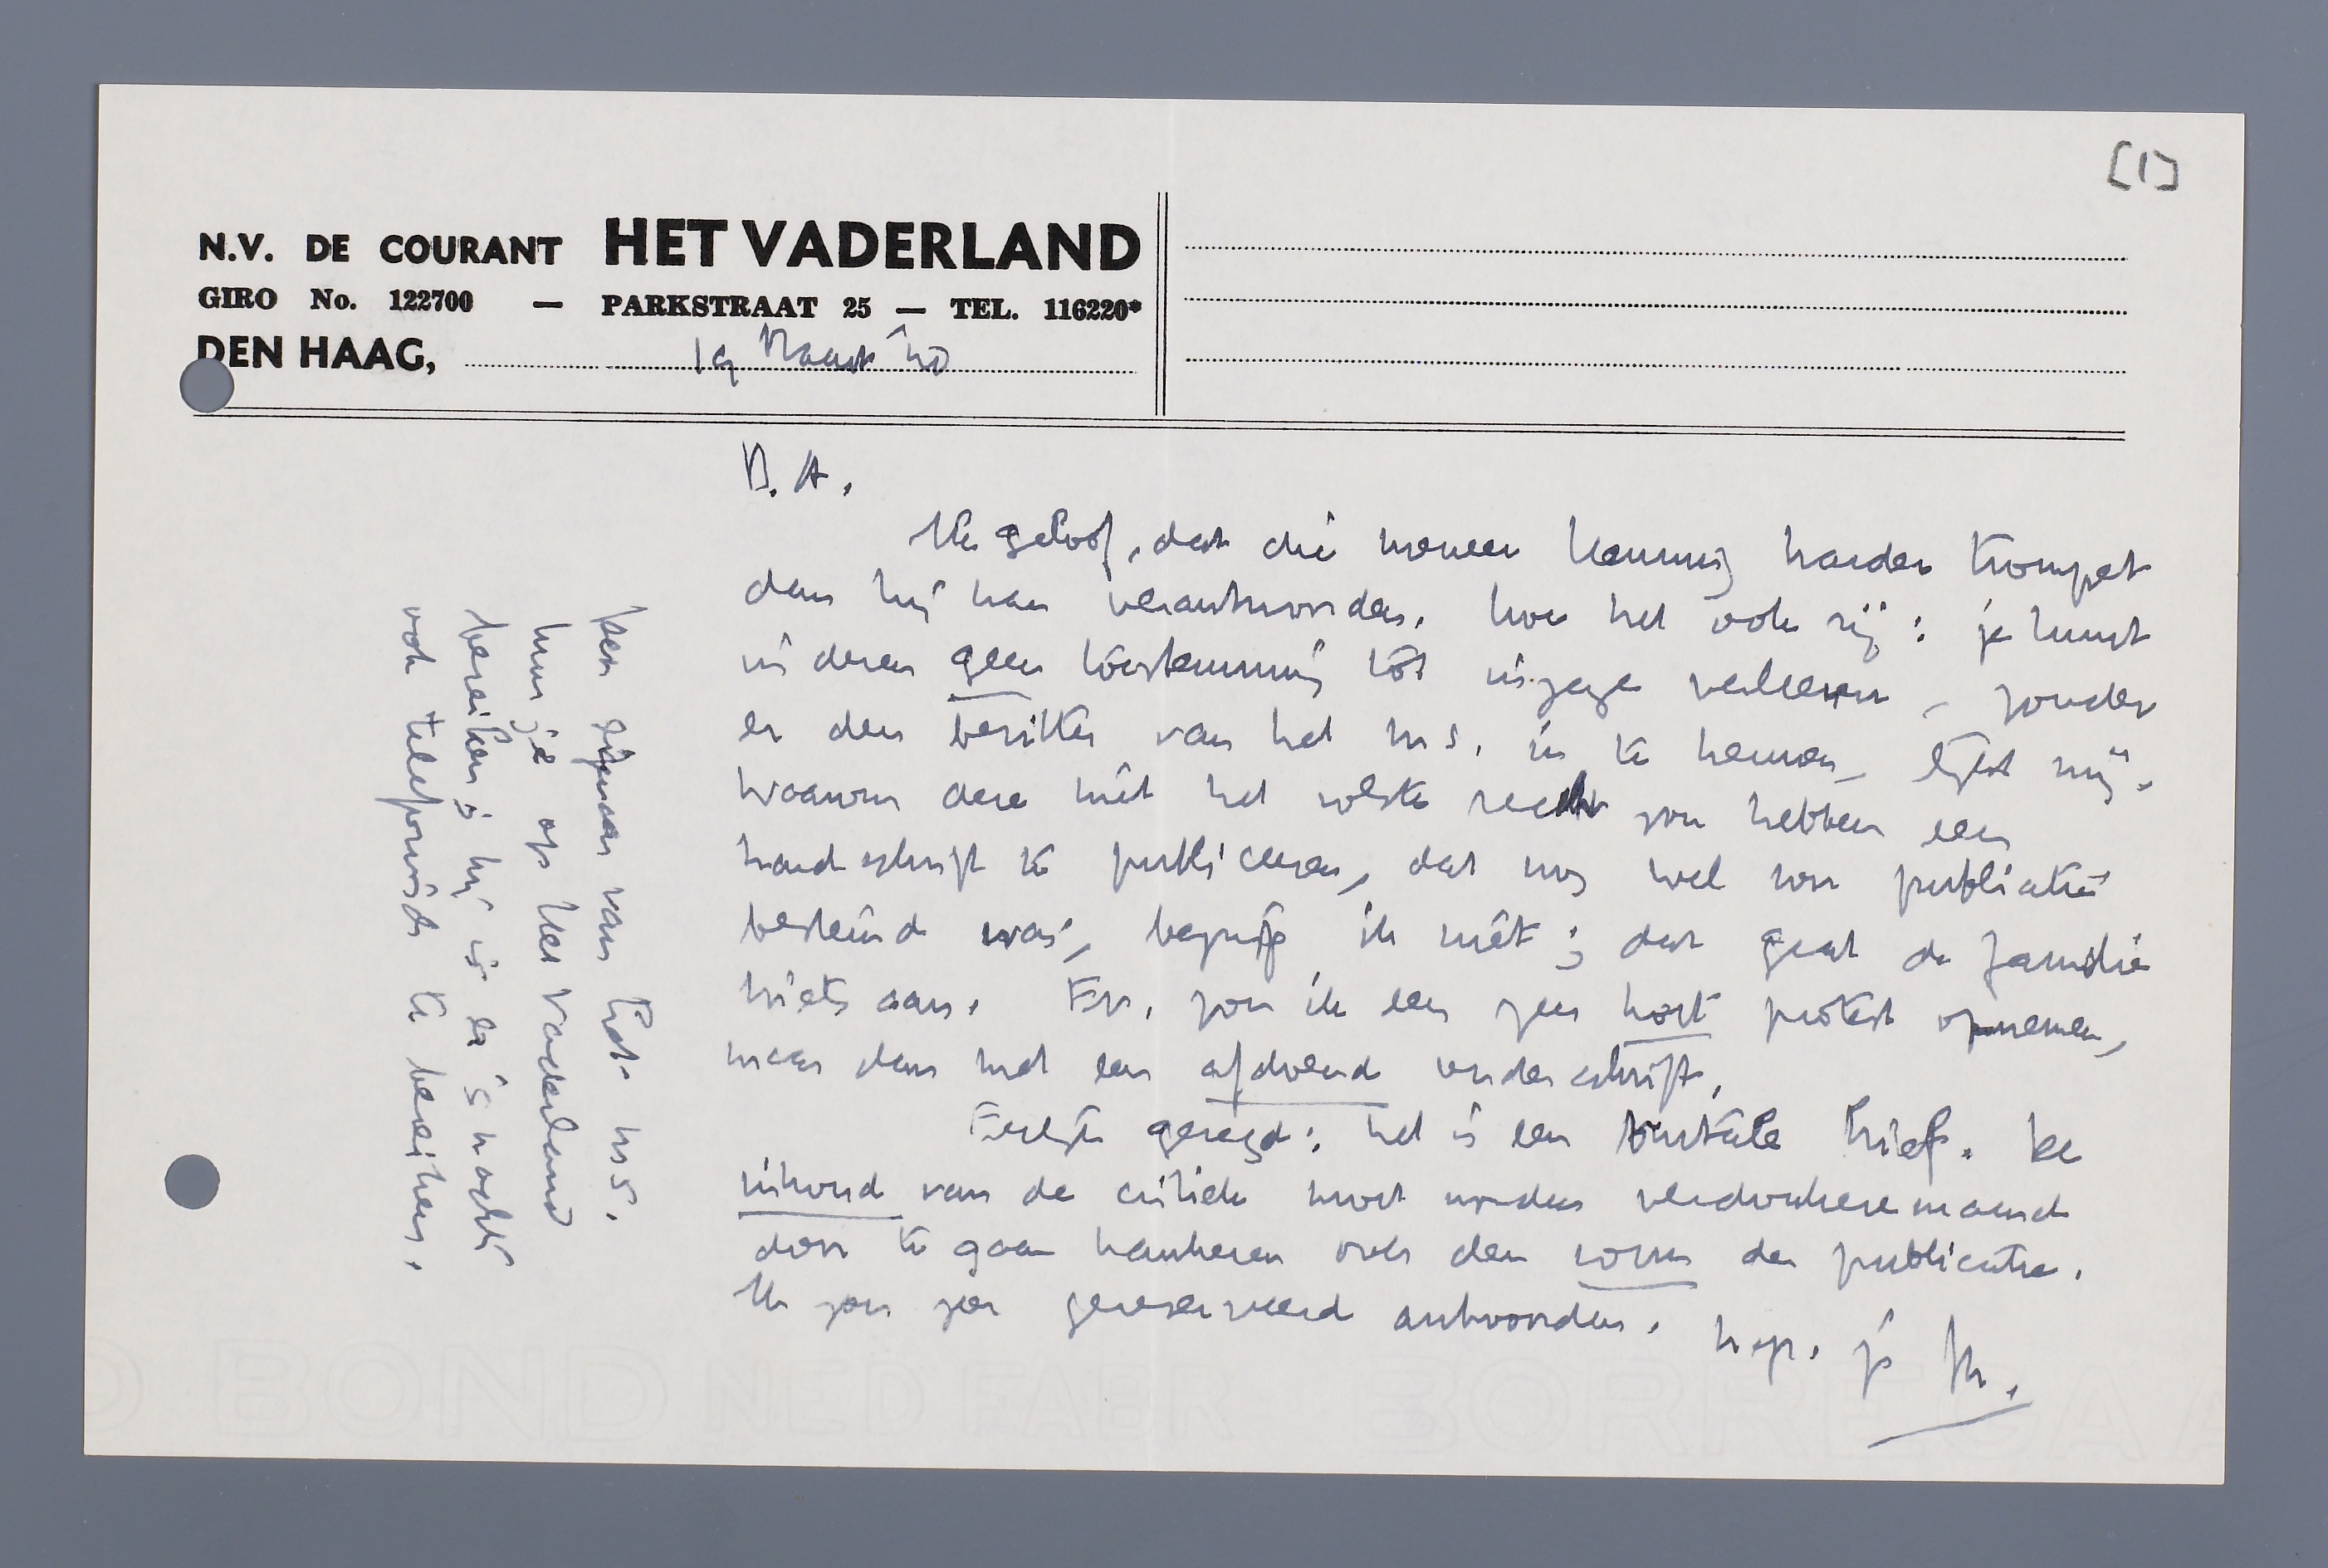 [1]
N.V. DE COURANT HET VADERLAND
GIRO No. 122700 — PARKSTRAAT 25 — TEL. 116220*
DEN HAAG, 19 Maart '40
B. A.
Ik geloof, dat die meneer harder trompet
dan hij kan verantwoorden. hoe het ook zij: je kunt
in dezen geen toestemming tot inzage verleenen, zonder
er den bezitter van het ms. in te kennen, lijkt mij.
Waarom deze niet het volste recht zou hebben een
handschrift te publiceeren, dat nog wel voor publicatie
bestemd was, begrijp ik niet; dat gaat de familie
niets aan. Ev. zou ik een zeer kort protest opnemen,
maar dan met een afdoend onderschrift.
Eerlijk gezegd: het is een brutale brief. De
inhoud van de critiek moet worden verdonkeremaand
door te gaan kankeren over den vorm der publicatie.
Ik zou zeer gereserveerd antwoorden. h. gr. je M.
Den eigenaar van het ms.
kun je op Het Vaderland
bereiken; hij is er 's nachts
ook telefonisch te bereiken.
BOND NED FABR BORREGAA